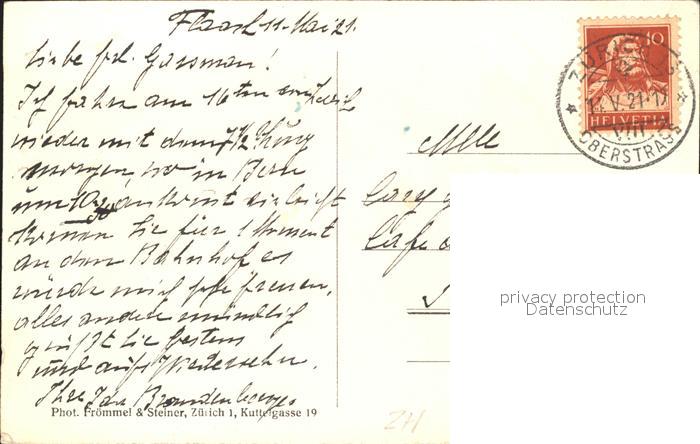 Flaach 11. Mai 21.
Liebe Frl. Gassman!
Ich fahre am 16ten
wieder mit dem 7½ Zug
morgen, wo in Bern
um 10 ankommt vielleicht
kommen Sie für 1 Moment
an den Bahnhof es
würde mich sehr freuen,
alles andere mündlich
grüsst Sie bestens
und aufs Wiedersehn.
Ihre Ida Brandenberger
Phot. Frömmel & Steiner, Zürich 1, Kuttelgasse 19
10
HELVETIA
ZÜRICH
11.V.21
VIII
OBERSTRASS
Mlle
Cafe
privacy protection
Datenschutz
ZH